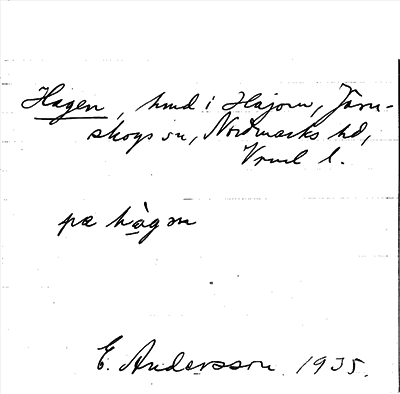 Hagen, hmd i Högom, Järn-
skogs sn, Nordmarks hd,
Vrml l.
pæ hàgən
E. Andersson 1935.